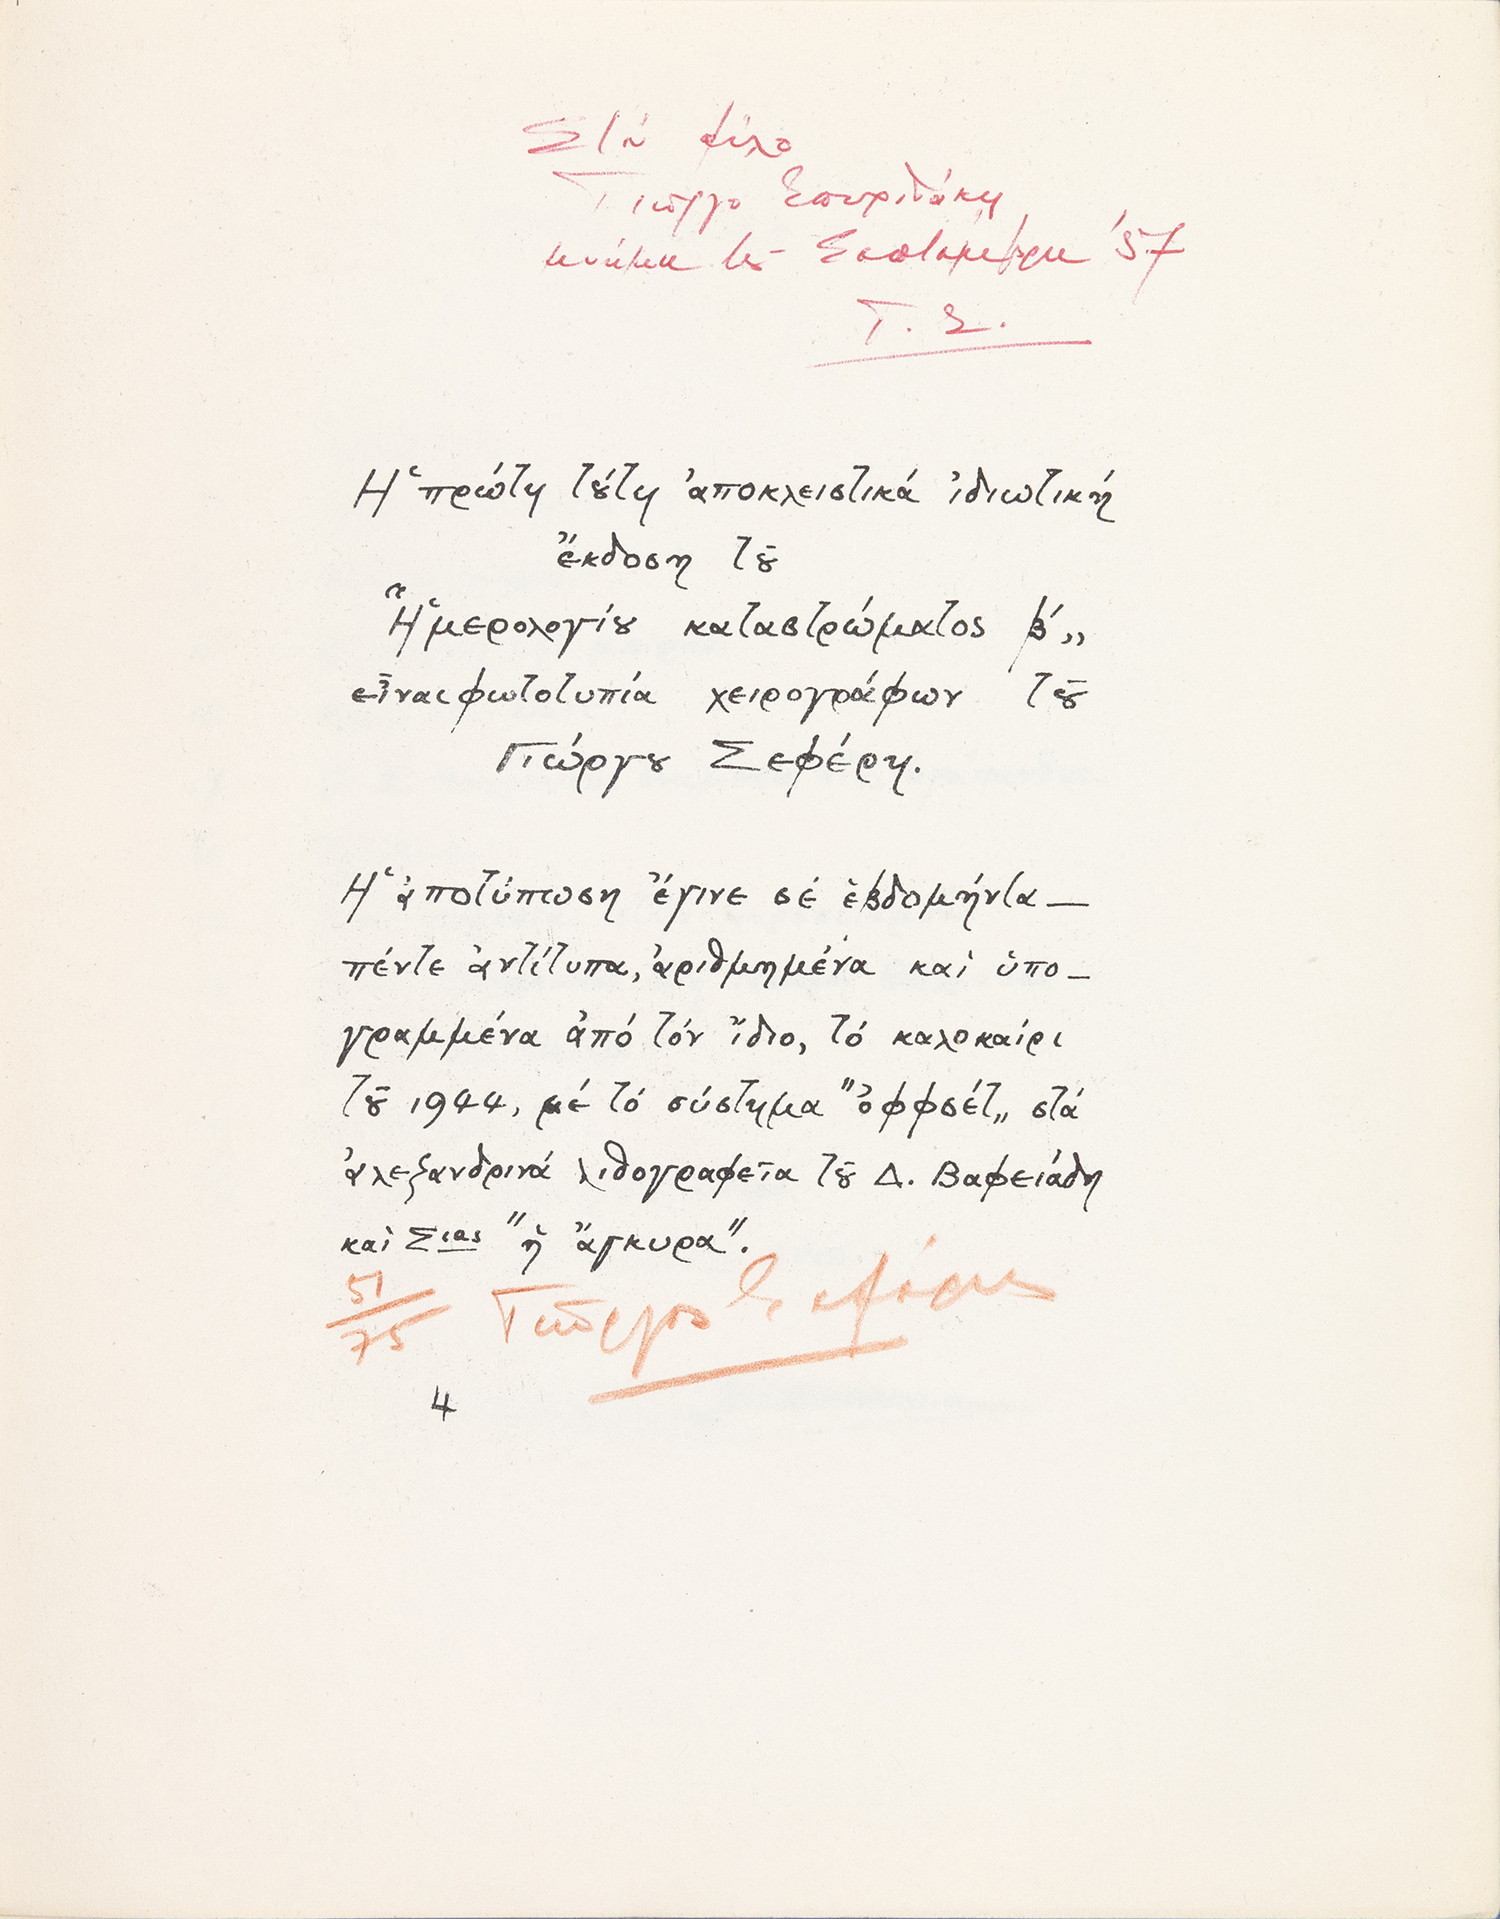 Στὸ φίλο
Γιῶργο Σπυριδάκη
μνήμη τοῦ Σεπτέμβρη '57
Γ. Σ.
Ἡ πρώτη τούτη ἀποκλειστικά ἰδιωτική
ἔκδοση τοῦ
"Ἡμερολογίου καταστρώματος β΄"
εἶναι φωτοτυπία χειρογράφων τοῦ
Γιώργου Σεφέρη.
Ἡ ἀποτύπωση ἔγινε σέ ἑβδομήντα—
πέντε ἀντίτυπα, ἀριθμημένα καὶ ὑπο—
γραμμένα ἀπό τόν ἴδιο, τό καλοκαίρι
τοῦ 1944, μέ τό σύστημα "ὀφφσέτ" στά
ἀλεξανδρινά λιθογραφεῖα τοῦ Δ. Βαφειάδη
καὶ Σιας "ἡ ἄγκυρα".
51/75 Γιῶργος Σεφέρης
4